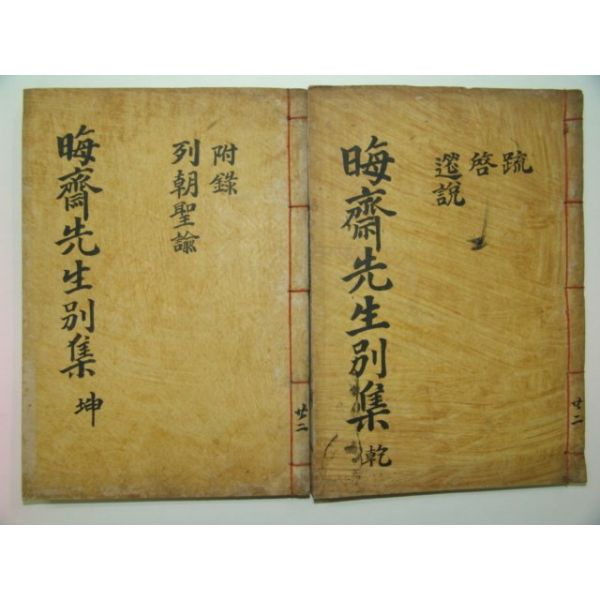 疏
啓
說
晦齋先生別集 乾
共二
附錄
列朝聖諭
晦齋先生別集 坤
共二